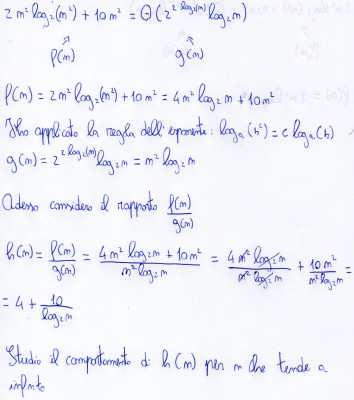 2 m² log₂(m²) + 10 m² = Θ(2^(2 log₂(m)) log₂ m)
f(m) g(m)
f(m) = 2m² log₂(m²) + 10m² = 4m² log₂ m + 10m²
Ho applicato la regola dell'esponente: logₐ(bᶜ) = c logₐ(b)
g(m) = 2^(2 log₂(m)) log₂ m = m² log₂ m
Adesso considero il rapporto f(m)/g(m)
h(m) = f(m)/g(m) = (4m² log₂ m + 10m²)/(m² log₂ m) = (4 m² log₂ m)/(m² log₂ m) + (10 m²)/(m² log₂ m) =
= 4 + 10/(log₂ m)
Studio il comportamento di h(m) per m che tende a
infinito